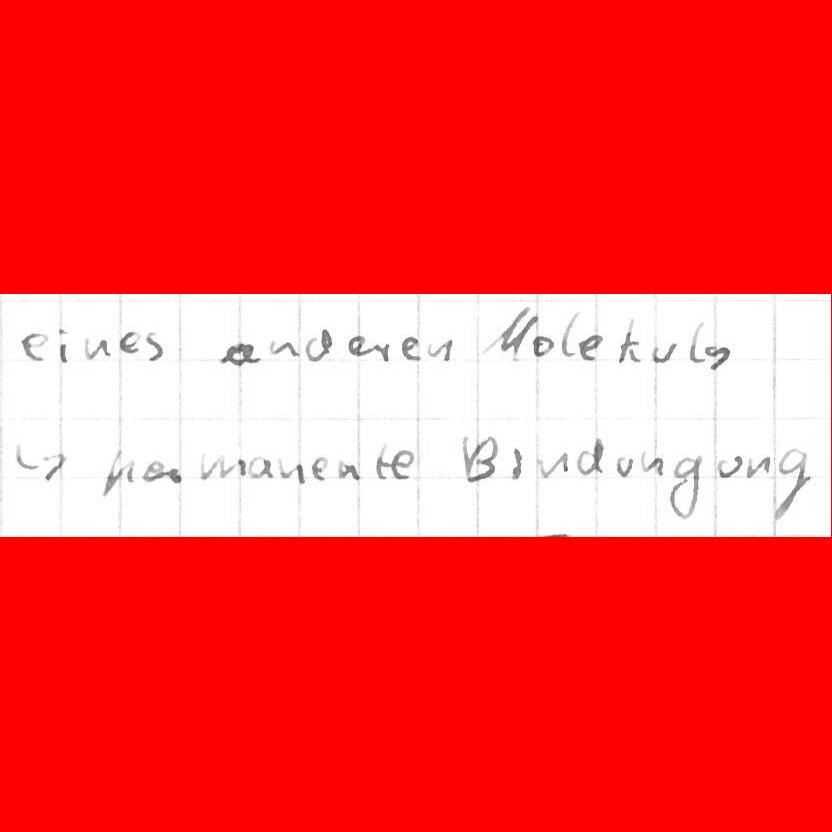 eines anderen Molekuls
↳ permanente Bindungung